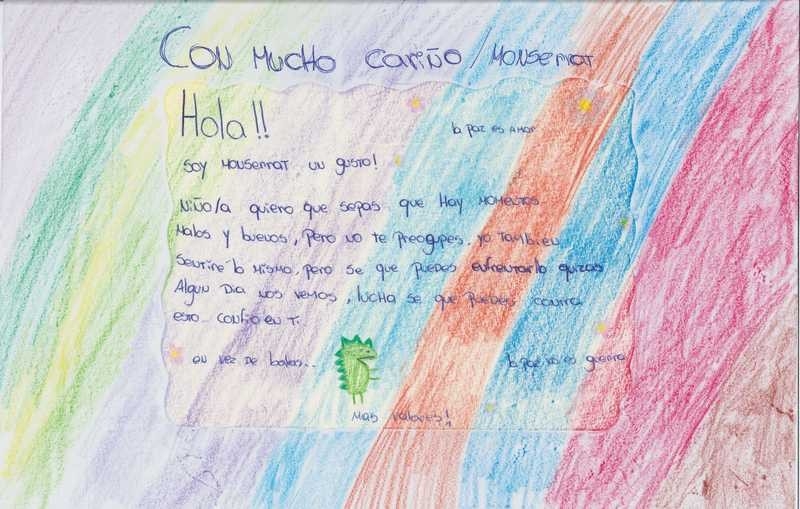 Con mucho cariño / Monserrat
Hola!!
la paz es amor
Soy Monserrat un gusto!
Niño/a quiero que sepas que Hay momentos
Malos y buenos, pero no te preocupes. yo también
Sentiré lo mismo, pero se que puedes enfrentarlo quizas
Algun Dia nos vemos, lucha se que puedes contra
esto... confio en ti.
en vez de balas..
la paz no es guerra
Mas valores!